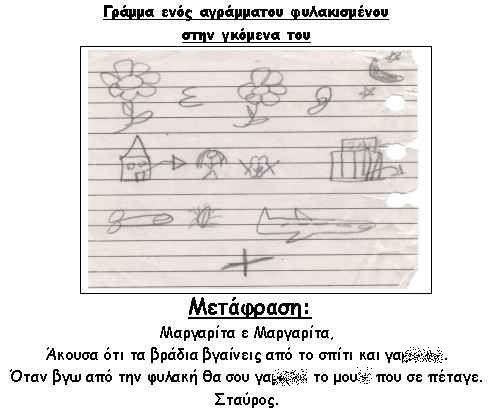 Γράμμα ενός αγράμματου φυλακισμένου
στην γκόμενα του
Μετάφραση:
Μαργαρίτα ε Μαργαρίτα,
Άκουσα ότι τα βράδια βγαίνεις από το σπίτι και γα
Όταν βγω από την φυλακή θα σου γα το μου που σε πέταγε.
Σταύρος.